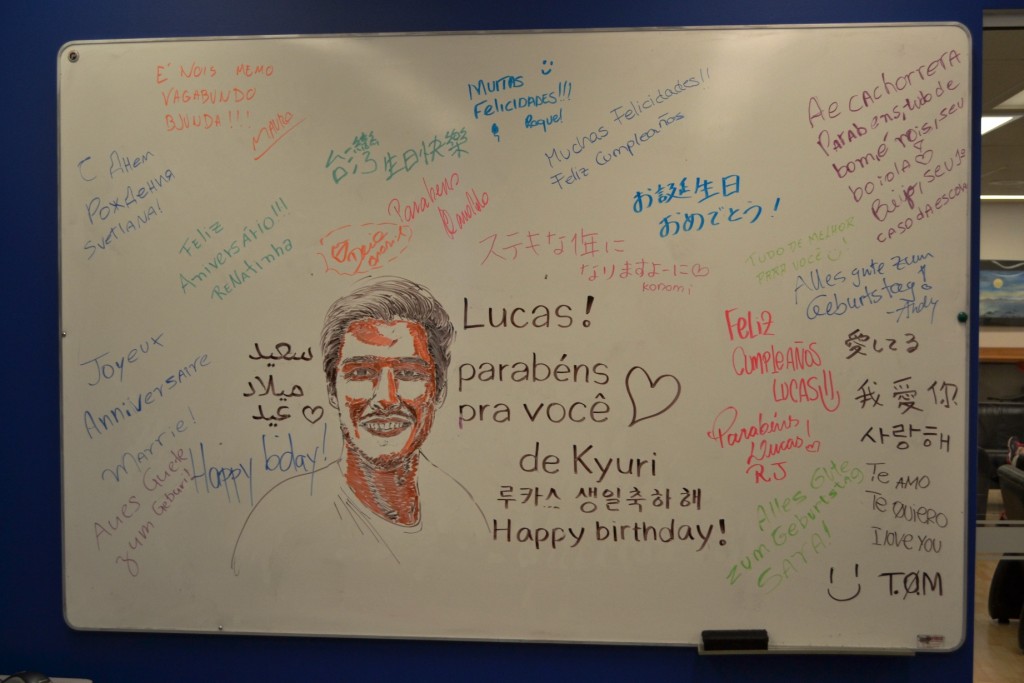 E' NOIS MEMO
VAGABUNDO
BJUNDA!!!
MAURO
MUITAS
FELICIDADES!!!
Raquel
Muchas Felicidades!!
Feliz Cumpleaños
Ae CACHORRERA
Parabens, tudo de
bom é nois, seu
boiola ♡
Beijo, seu
caso da escola
台灣 生日快樂
С Днем
Рождения
Svetlana!
Feliz
Aniversário!!!
RENatinha
Parabens
お誕生日
おめでとう!
ステキな1年に
なりますよーに♡
konomi
TUDO DE MELHOR
PARA VOCÊ!
Alles gute zum
Geburtstag!
-Andy
Lucas!
parabéns
pra você ♡
de Kyuri
루카스 생일축하해
Happy birthday!
سعيد
ميلاد
عيد ♡
Joyeux
Anniversaire
Marrie!
Happy bday!
Alles Guete
zum Geburi!
FELIZ
CUMPLEAÑOS
LUCAS!!!
Parabéns
Lucas!
R.J ♡
愛してる
我 愛 你
사랑해
Te AMO
Te QUIERO
I love YOU
T.ØM
Alles Gute
zum Geburtstag
SARA!